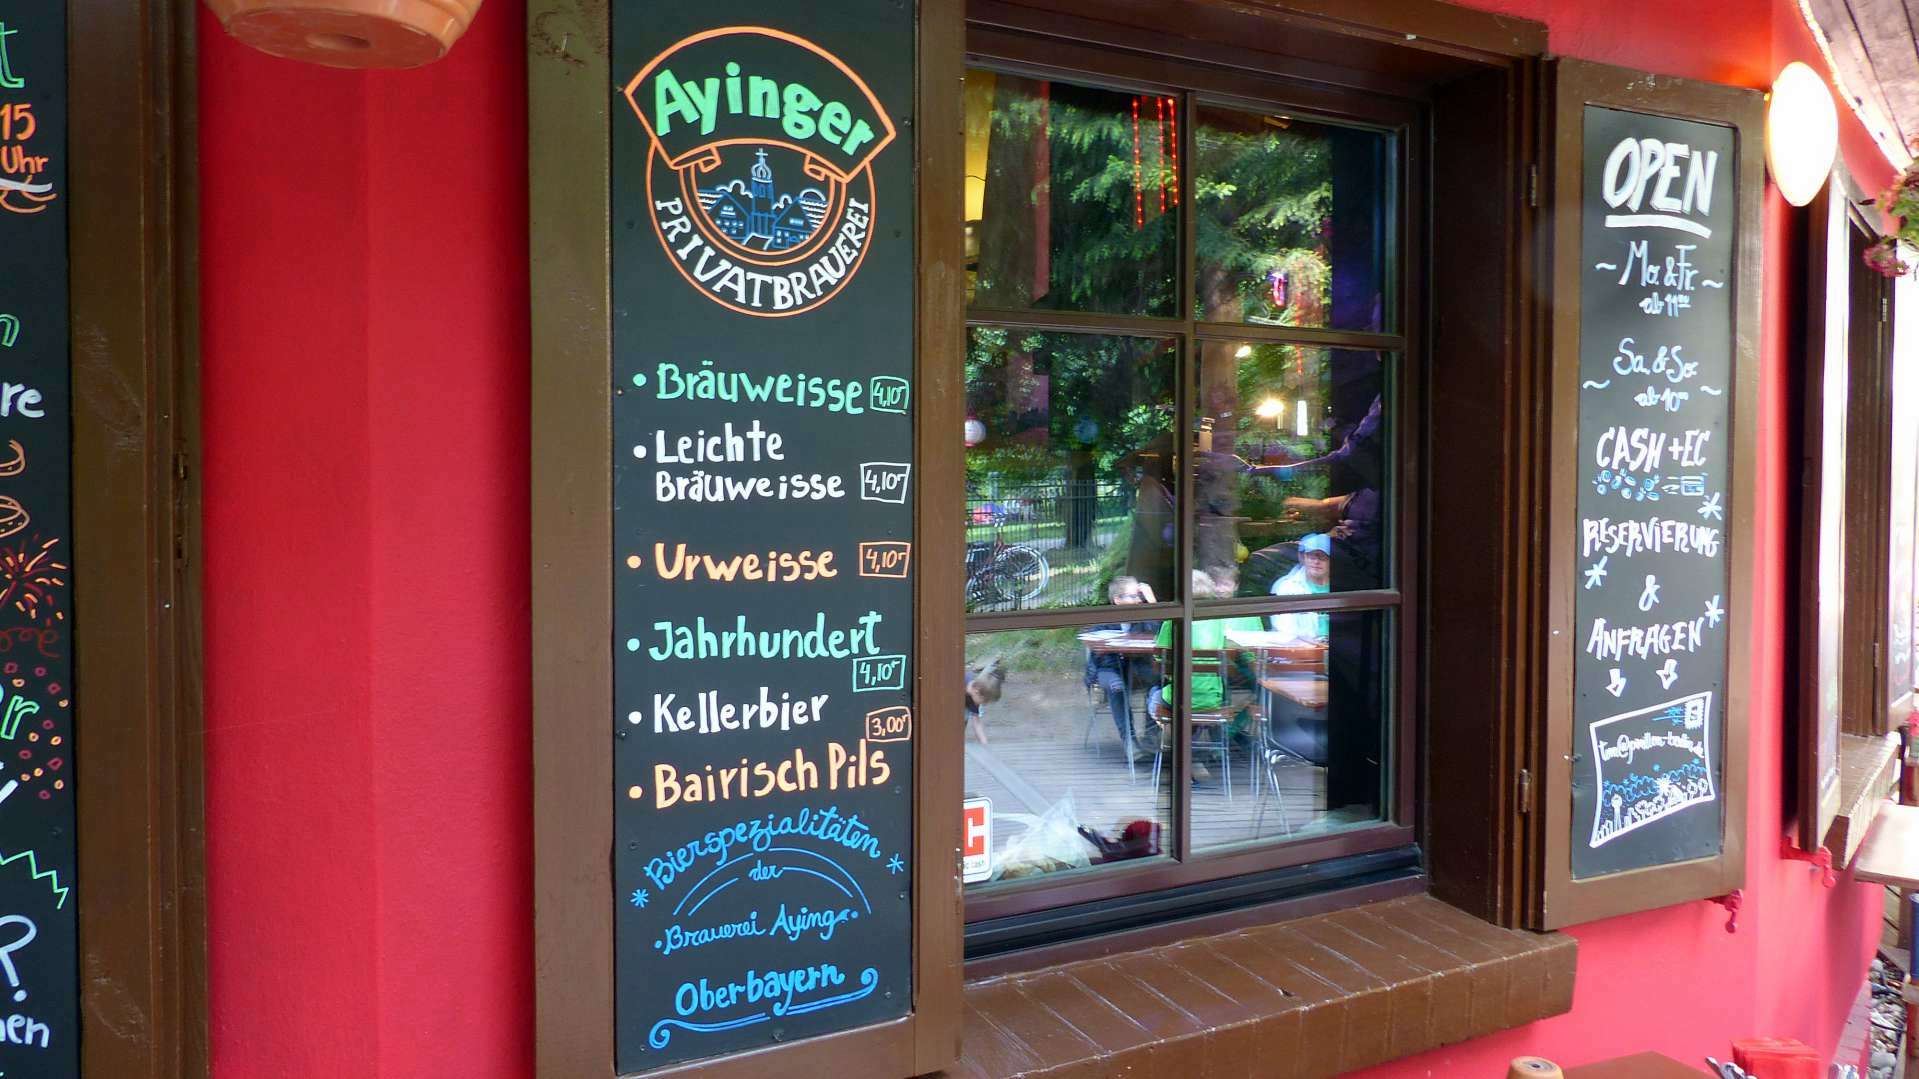 t
15
Uhr
re
r
?
nen
Ayinger
PRIVATBRAUEREI
• Bräuweisse 4,10
• Leichte
Bräuweisse 4,10
• Urweisse 4,10
• Jahrhundert
4,10
• Kellerbier
3,00
• Bairisch Pils
* Bierspezialitäten *
der
• Brauerei Aying •
Oberbayern
OPEN
~ Mo. & Fr. ~
ab 11⁰⁰
~ Sa. & So. ~
ab 10⁰⁰
CASH + EC
RESERVIERUNG*
* &
ANFRAGEN*